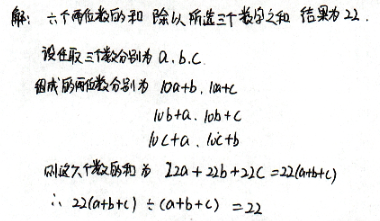 解: 六个两位数的和 除以 所选三个数字之和 结果为 22.
设任取三个数分别为 a.b.c.
组成的两位数分别为 10a+b. 10a+c
10b+a. 10b+c
10c+a. 10c+b
则这六个数的和为 22a+22b+22c=22(a+b+c)
∴ 22(a+b+c)÷(a+b+c)=22